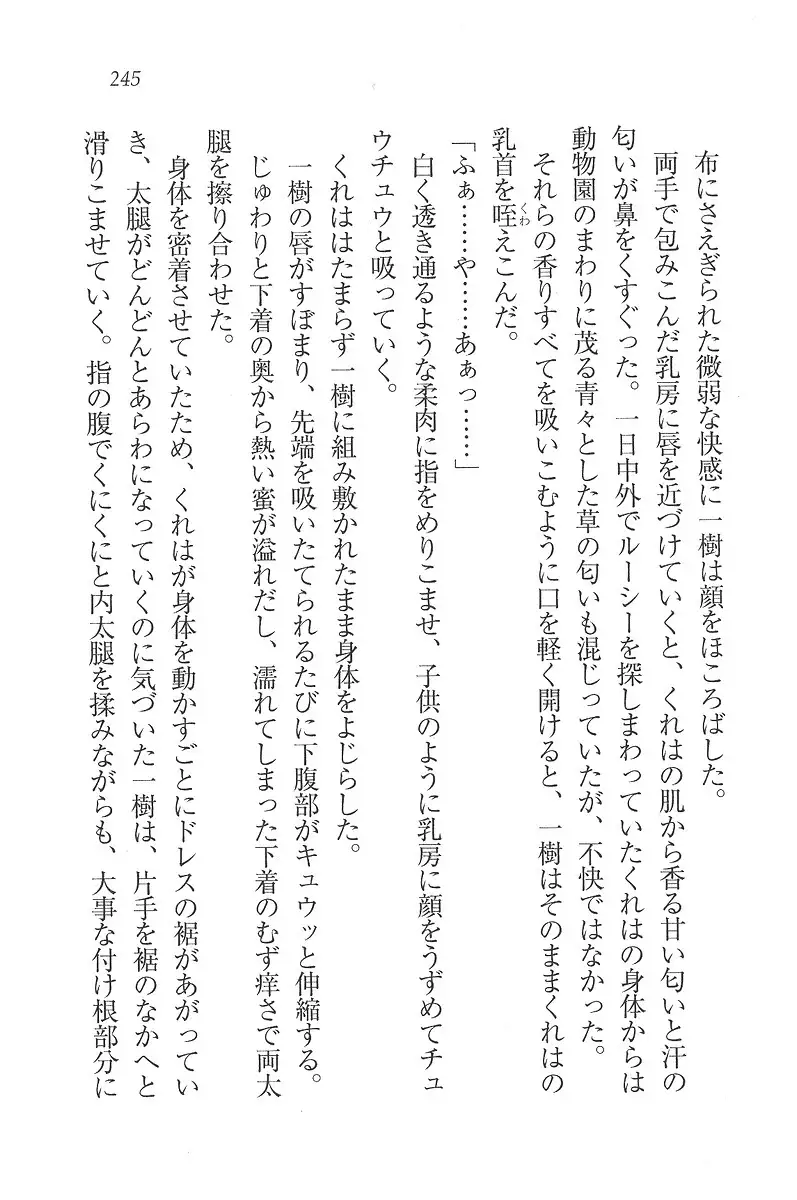 245
布にさえぎられた微弱な快感に一樹は顔をほころばした。
両手で包みこんだ乳房に唇を近づけていくと、くれはの肌から香る甘い匂いと汗の
匂いが鼻をくすぐった。一日中外でルーシーを探しまわっていたくれはの身体からは
動物園のまわりに茂る青々とした草の匂いも混じっていたが、不快ではなかった。
それらの香りすべてを吸いこむように口を軽く開けると、一樹はそのままくれはの
乳首を咥くわえこんだ。
「ふぁ……や……あぁっ……」
白く透き通るような柔肉に指をめりこませ、子供のように乳房に顔をうずめてチュ
ウチュウと吸っていく。
くれははたまらず一樹に組み敷かれたまま身体をよじらした。
一樹の唇がすぼまり、先端を吸いたてられるたびに下腹部がキュウッと伸縮する。
じゅわりと下着の奥から熱い蜜が溢れだし、濡れてしまった下着のむず痒さで両太
腿を擦り合わせた。
身体を密着させていたため、くれはが身体を動かすごとにドレスの裾があがってい
き、太腿がどんどんとあらわになっていくのに気づいた一樹は、片手を裾のなかへと
滑りこませていく。指の腹でくにくにと内太腿を揉みながらも、大事な付け根部分に